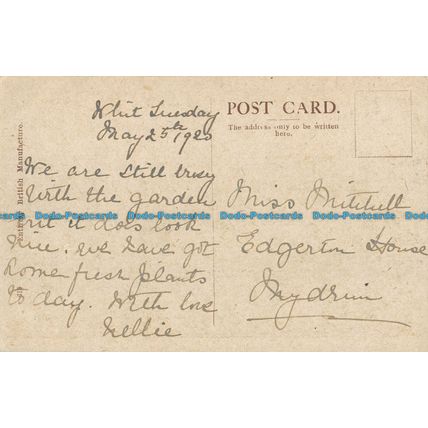 Whit Tuesday
May 25th 1920
We are still busy
with the garden
but it does look
nice. we have got
some fresh plants
to day. With love
Nellie
POST CARD.
The address only to be written
here.
Miss Mitchell
Edgerton House
Mydrim
Entirely British Manufacture.
Dodo-Postcards Dodo-Postcards Dodo-Postcards Dodo-Postcards